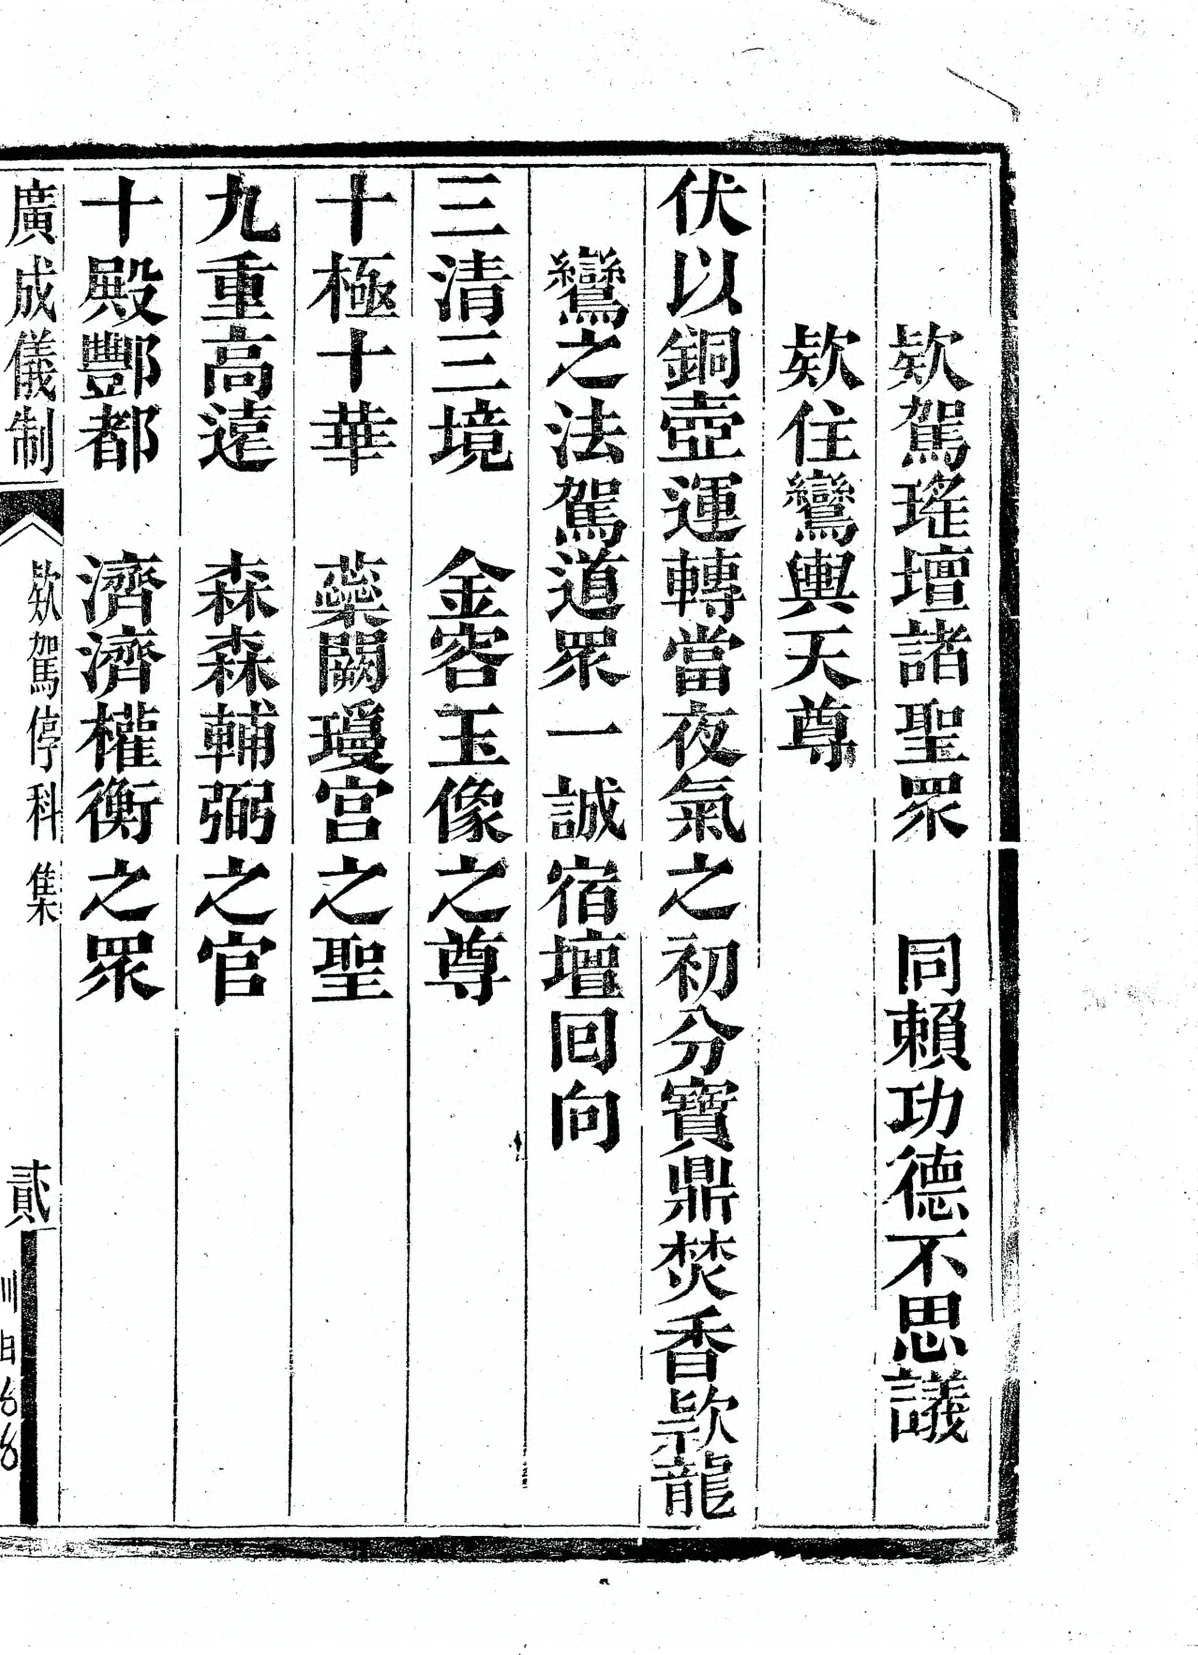 欵駕瑤壇諸聖眾　同賴功德不思議
欵住鸞輿天尊
伏以銅壺運轉當夜氣之初分寶鼎焚香欵龍
鸞之法駕道眾一誠宿壇回向
三清三境　金容玉像之尊
十極十華　蘂闕瓊宮之聖
九重高遠　森森輔弼之官
十殿酆都　濟濟權衡之眾
廣成儀制　欵駕停科　集　貳
川日88